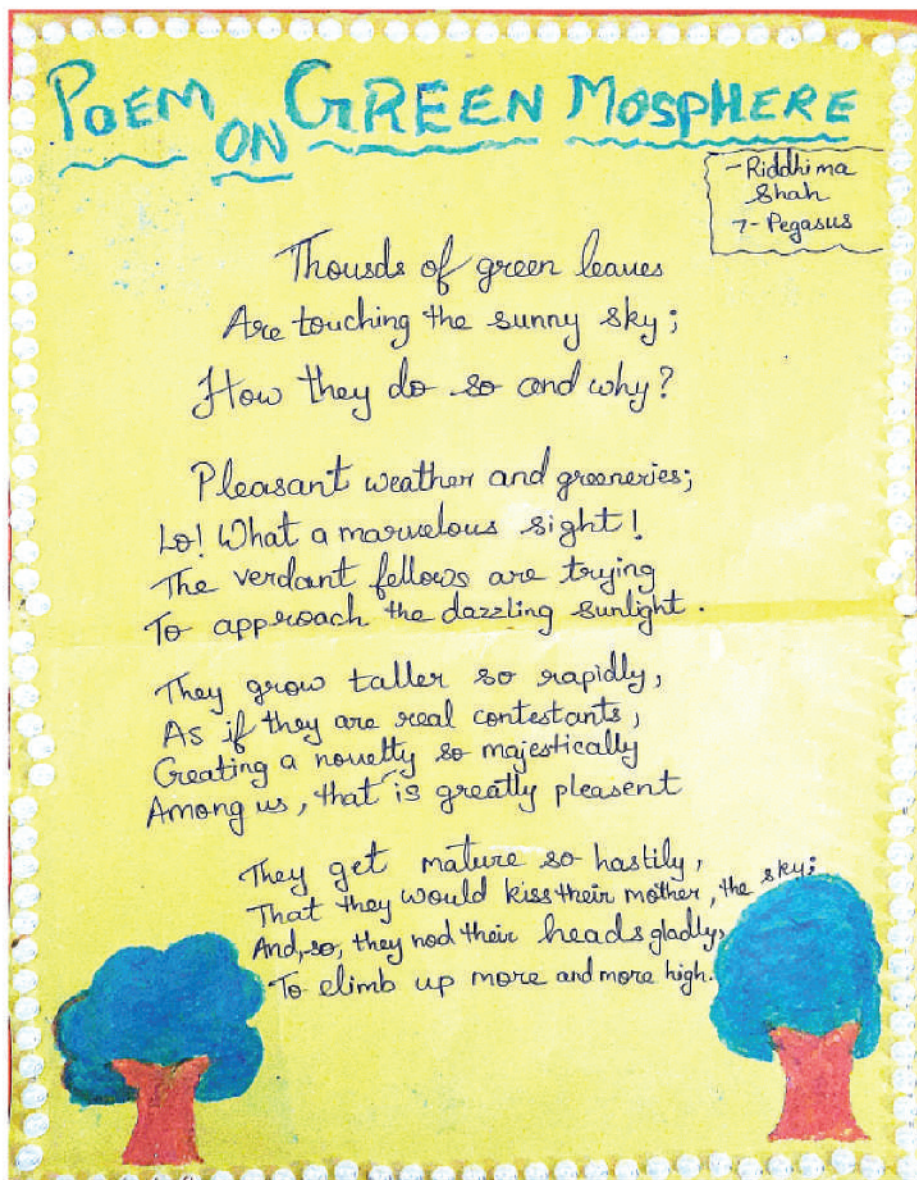 POEM ON GREEN MOSPHERE
-Riddhima
Shah
7-Pegasus
Thousds of green leaves
Are touching the sunny sky;
How they do so and why?
Pleasant weather and greeneries;
Lo! What a marvelous sight!
The verdant fellows are trying
To approach the dazzling sunlight.
They grow taller so rapidly,
As if they are real contestants,
Creating a novelty so majestically
Among us, that is greatly pleasent
They get mature so hastily,
That they would kiss their mother, the sky;
And, so, they nod their heads gladly,
To climb up more and more high.